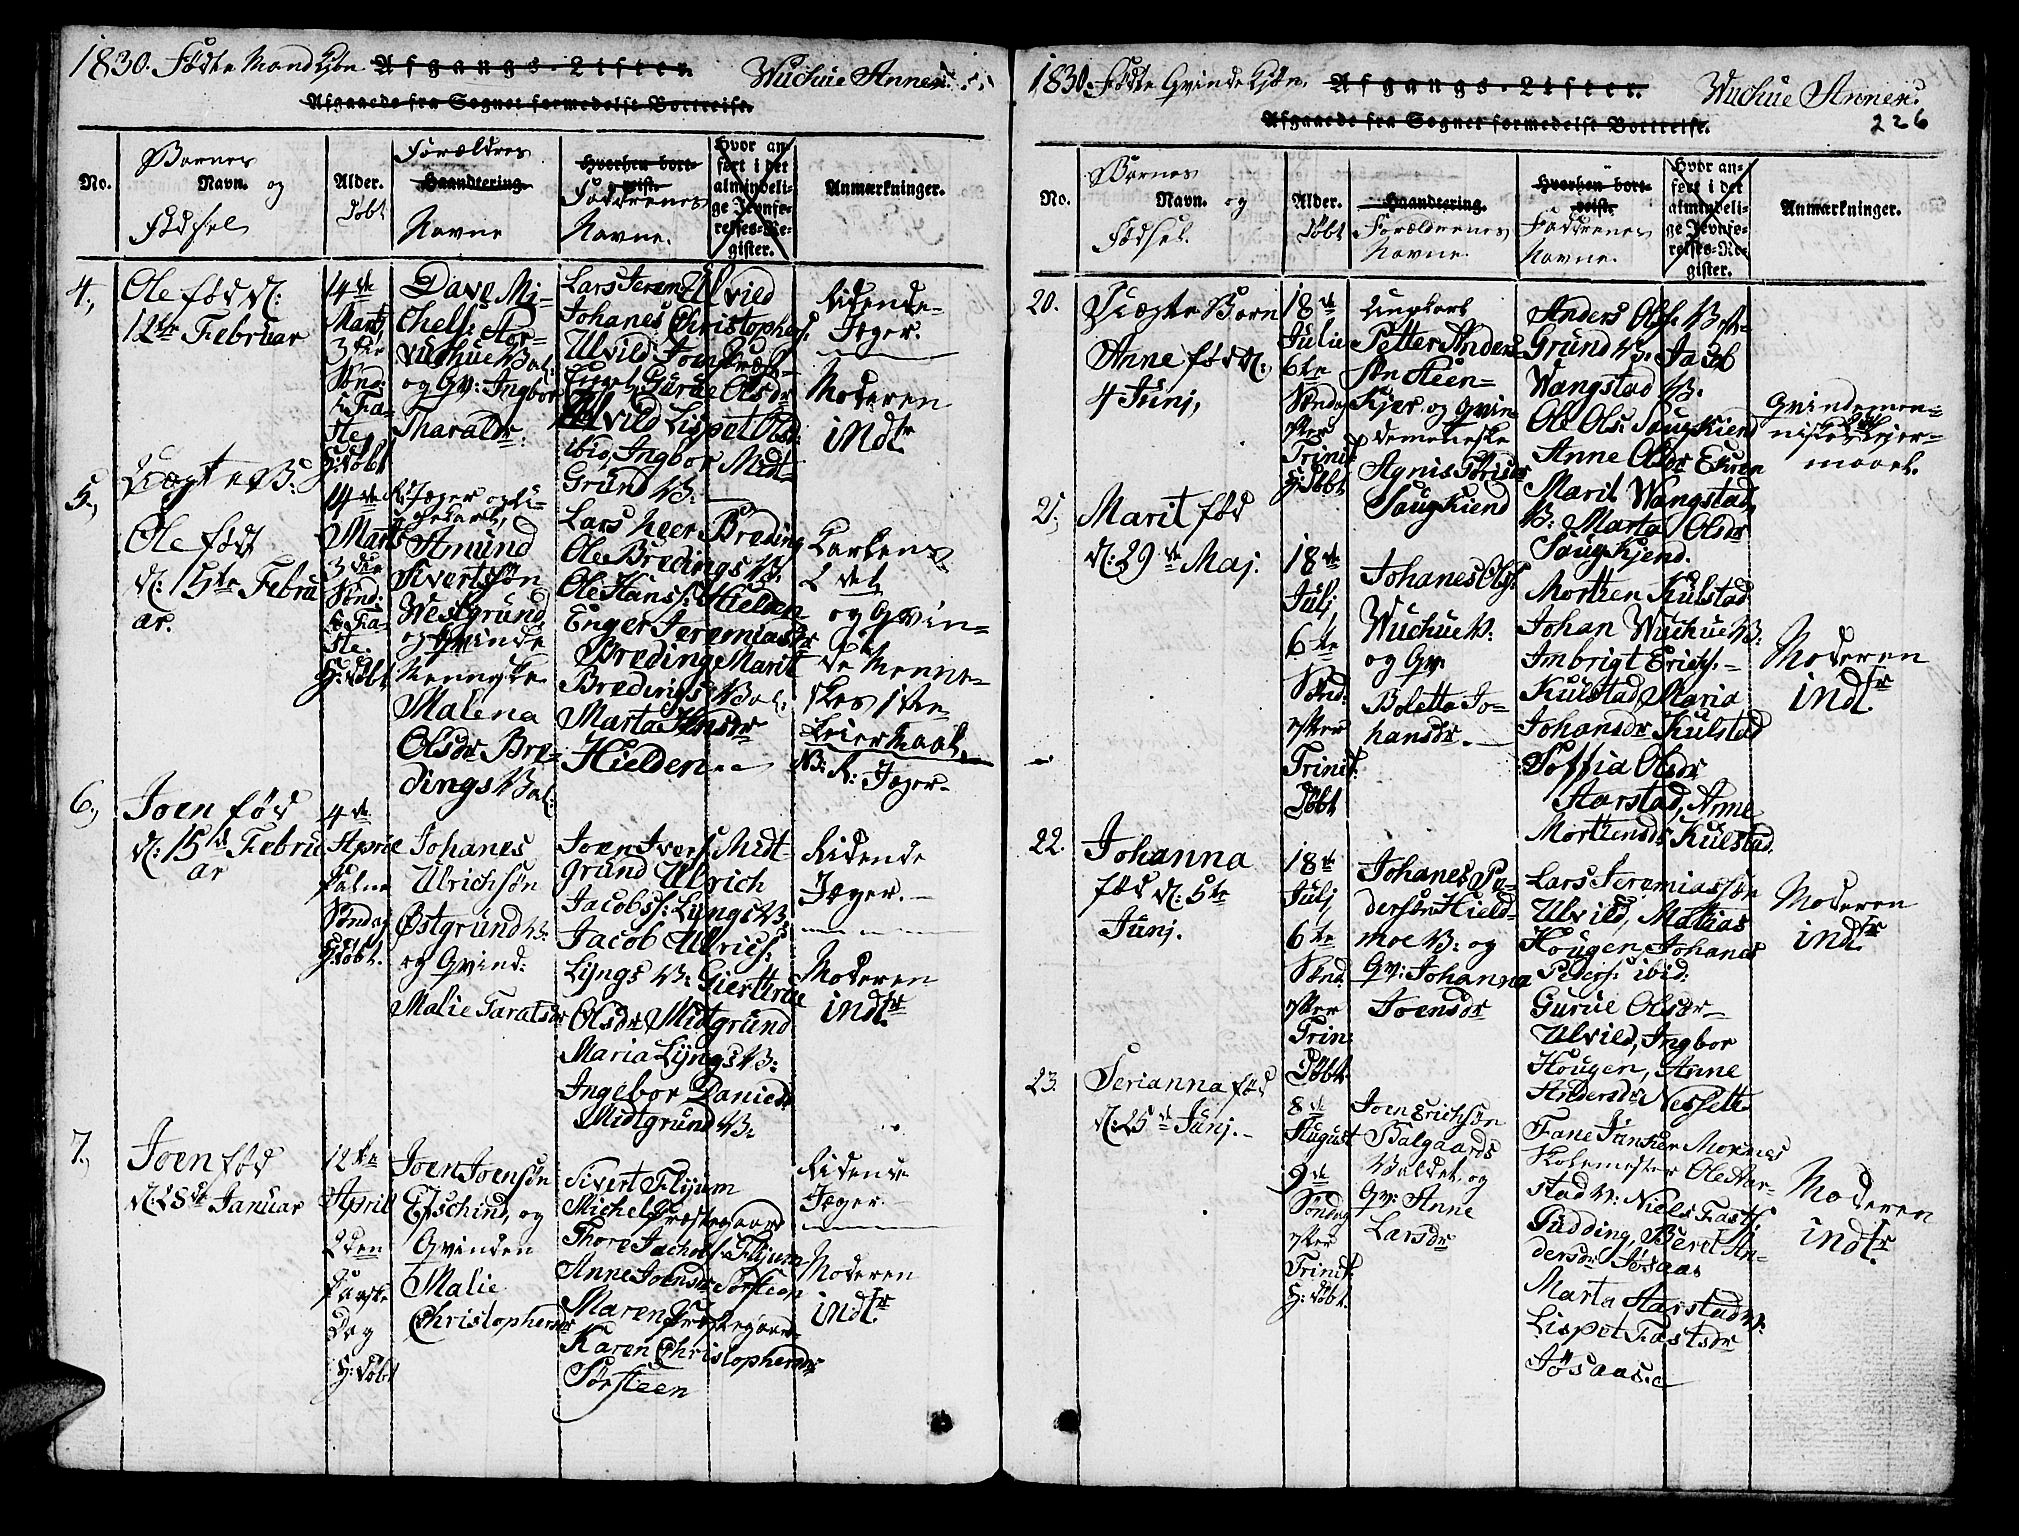 1830. Fødte Mandkjøn Afgangs-Lister. Wuchue Annex.
Afgaaede fra Sognet formedelst Bortreise.
No.
Barnes
Navn. og
Fødsel
Alder.
Døbt
Forældres
Haandtering.
Navne
Hvorhen bort-
reist.
Faddrenes
Navne.
Hvor an-
ført i det
almindeli-
ge Jevnfø-
relses-Re-
gister.
Anmærkninger.
4,
Ole født d:
12te Februar
14de
Marts
3die
Sønd:
i Fa-
ste
H: Døbt
Dave Mi-
chels: Stor-
vuchue Val:
og Qv: Ingbor
Tharaldr.
Lars Jerem: Ulvild
Johanes Christophers:
Ulvild Joen
Gurue Olsdr
Ulvild Lispet Olsd:
ibid, Ingbor Midt-
Grund V:
Ridende
Jæger.
Moderen
indt.
5,
Uægte B:
Ole født
d: 15te Febru
ar.
14de
Marts
3die
Sønd:
i Fa-
ste.
H: Døbt
R: Jæger og
Amund
Sivertsøn
Westgrund
og Qvinde
Menneske
Malena
Olsdr Bre-
dings Val:
Lars heer Breding
Ole Bredings V:
Ole Hans: Hielden
Enger Jeremiasdr
Breding Marit
Bredings Val:
Marta Hansdr
Hielden
Karlens
2det
og Qvin-
de Menne-
skes 1ste
Leiermaal,
R: Jæger
6,
Joenød
d: 15de Febru
ar
4de
Aprie
Palme
Søndag
H: Døbt.
Johanes
Ulrichsøn
Østgrund V:
og Qvind:
Malie Taraldsdr
Joen Ivers: Midt-
grund Ulrich
Jacobs: Lyngs V:
Jacob Ulrichs:
Lyngs V: Gierttrue
Olsdr Midtgrund
Maria Lyngs V:
Ingebor Danieldr
Midtgrund V:
Ridende
Jæger.
Moderen
indt.
7,
Joen fød
d: 28de Januar
12te
April
2den
Paaske
Dag
H: Døbt
Joen Joensøn
Eschind, og
Qvinden
Malie
Christophersdr
Sivert Flyum
Michel Præstegaard
Thore Jachobs: Flyum
Anne Joensdr Sørsteen
Maren Præstegaard
Karen Christophersdr
Sørsteen
Ridende
Jæger.
Moderen
indt.
1830. Fødte Qvindekjøn. Afgangs-Lister. Wuchue Annex.
226
Afgaaede fra Sognet formedelst Bortreise.
No.
Barnes
Navn. og
Fødsel.
Alder.
Døbt
Haandtering.
Forældrenes
Navne.
Hvorhen bort-
reist.
Faddrenes
Navne.
Hvor an-
ført i det
almindeli-
ge Jevnfø-
relses-Re-
gister.
Anmærkninger.
20.
Uægte Barn
Anne fød d:
4 Junj,
18de
Julie
6te
Søndag
efter
Trinit
H: Døbt
Ungkarl
Petter Anders
Steen-
Kjer, og Qvin
demeneske
Agnis
Saugkiend
Anders Ols:
Grund V: Jacob
Wangstad V:
Ole Ols: Saugkiend
Anne Olsdr Ekren
Marit Wangstad
V: Marta Olsdr
Saugkjend.
Qvindemen-
niskes Lejer-
maal.
21,
Marit fød
d: 29de Maj.
18de
Julj
6te
Sønd:
efter
Trinit:
Døbt
Johanes Ols:
Wuchue V:
og Qv.
Boletta Jo-
hansdr.
Mortten Kulstad
Johan Wuchue V:
Imbrigt Erichs:
Kulstad, Maria
Johansdr Kulstad
Soffia Olsdr
Starstad, Anne
Morttensdr Kulstad.
Moderen
indt.
22.
Johanna
fød d: 5te
Junj.
18de
Julj
6te
Sønd
efter
Trin:
Døbt.
Johanes Pe-
dersøn Hield-
moe V: og
Qv: Johanna
Joensdr
Lars Jeremiassøn
Ulvild, Mattias
Hougen, Johanes
Peders: ibid:
Gurue Olsdr
Ulvild, Ingbor
Hougen, Anne
Andersdr Nessett
Moderen
indt.
23.
Serianna fød
d: 25de Junj.
8de
August
9de
Søndag
efter
Trinit:
H: Døbt.
Joen Erichsøn
Balgaards
Valdet, og
Qv: Anne
Larsdr
Fane Junker Mornes
Skolemester Ole Star-
stad V: Niels Fasts:
Pudding, Beret An-
dersdr Jøsaas
Marta Starstad V:
Lispet Fastsdr
Jøsaas.
Moderen
indt.